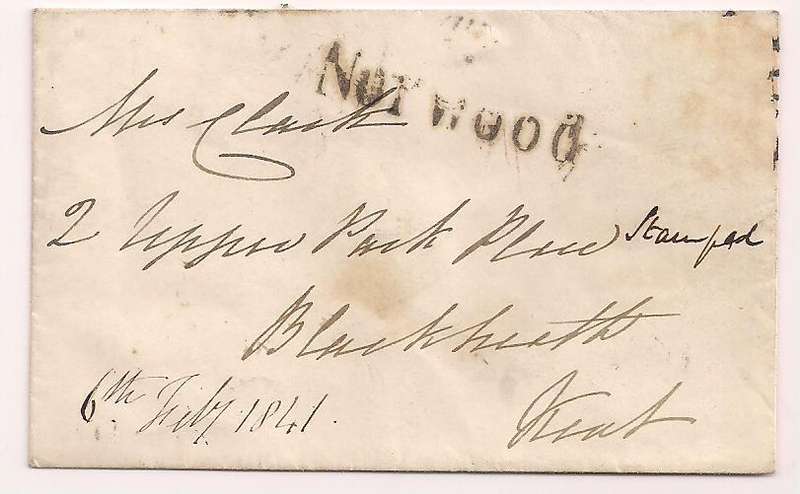 Norwood
Mrs Clark
2 Upper Park Place Stamped
Blackheath
Kent
6th Feby 1841.